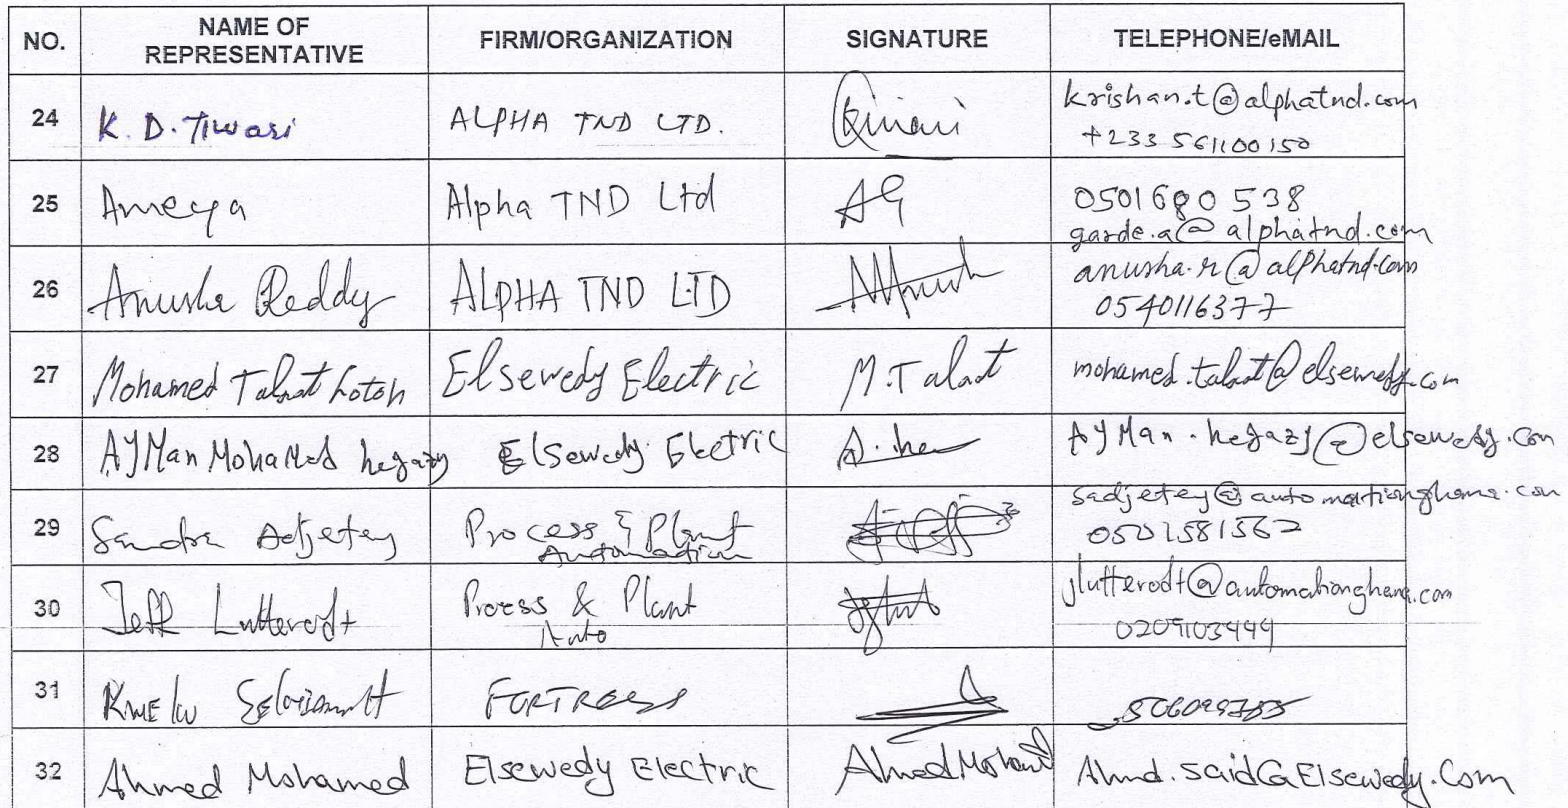 NO. NAME OF REPRESENTATIVE FIRM/ORGANIZATION SIGNATURE TELEPHONE/eMAIL
24 K. D. Tiwari ALPHA TND LTD. krishan.t@alphatnd.com
+233 561100150
25 Ameya Alpha TND Ltd AG 0501680538
garde.a@alphatnd.com
26 Anusha Reddy ALPHA TND LTD anusha.r@alphatnd.com
0540116377
27 Mohamed Talaat Elsewedy Electric M.Talaat mohamed.talaat@elsewedy.com
28 AYMan MohaMed hegazy Elsewedy Electric AYMan.hegazy@elsewedy.com
29 Sandra Adjetey Process & Plant sadjetey@automationghana.com
Automation
30 Jeff Lutterodt Process & Plant jlutterodt@automationghana.com
Auto 0209103444
31 KWEKU FORTRESS
32 Ahmed Mohamed Elsewedy Electric Ahmed Mohamed Ahmd.said@Elsewedy.Com